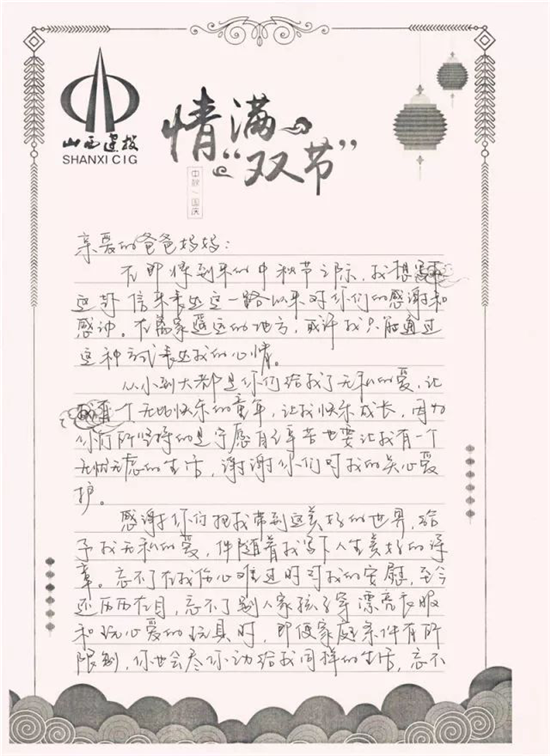 山西建投
SHANXI CIG
情满
“双节”
中秋 国庆
亲爱的爸爸妈妈：
在即将到来的中秋节之际，我想写下
这封信来表达这一路以来对你们的感谢和
感冲。在离家遥远的地方，或许我只能通过
这种方式表达我的心情。
从小到大都是你们给我了无私的爱，让
我有一个无比快乐的童年，让我快乐成长，因为
你们所坚持的是宁愿自己辛苦也要让我有一个
无忧无虑的生活，谢谢你们对我的关心爱
护。
感谢你们把我带到这美好的世界，给
予我无私的爱，伴随着我写下人生美好的篇
章。忘不了在我伤心难过时对我的安慰，至今
还历历在目，忘不了别人家孩子穿漂亮衣服
和玩心爱的玩具时，即便家庭条件有所
限制，你也会尽你动给我同样的生活，忘不